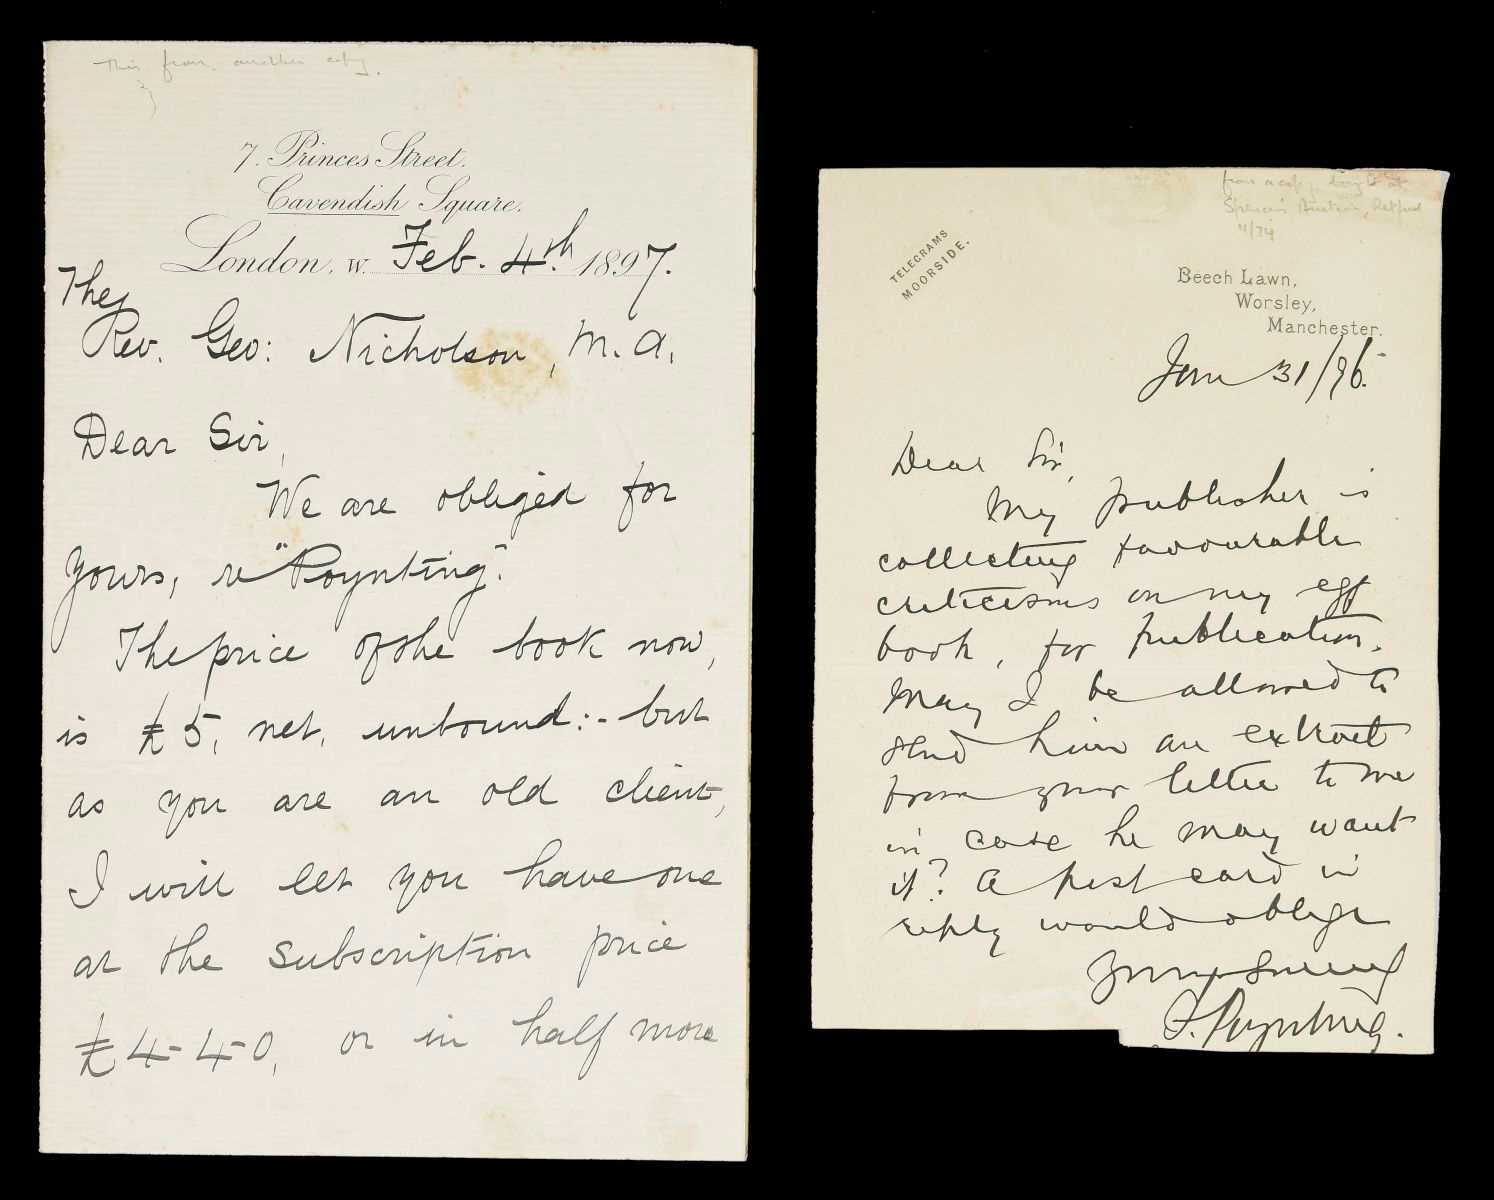 This from another copy.
7. Princes Street.
Cavendish Square.
London, W. Feb. 4th. 1897.
The
Rev. Geo: Nicholson, M. A.
Dear Sir,
We are obliged for
yours, re "Poynting".
The price of the book now,
is £5, net, unbound:- but
as you are an old client,
I will let you have one
at the subscription price
£4-4-0, or in half more
from a copy bought at
Spencer's Auction, Retford
11/74
TELEGRAMS
MOORSIDE.
Beech Lawn,
Worsley,
Manchester.
Jan 31/96.
Dear Sir,
My publisher is
collecting favourable
criticisms on my egg
book, for publication.
May I be allowed to
send him an extract
from your letter to me
in case he may want
it? A post card in
reply would oblige
Yours sincerely
F. Poynting.